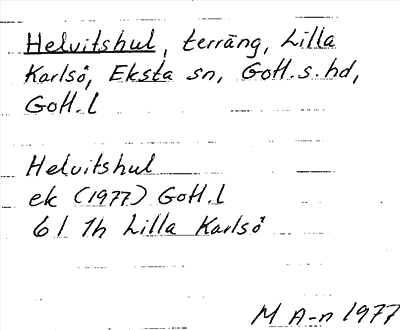 Helvitshul, terräng, Lilla
Karlsö, Eksta sn, Gotl. s. hd,
Gotl. l
Helvitshul
ek (1977) Gotl. l
6 I 7h Lilla Karlsö
M A-n 1977